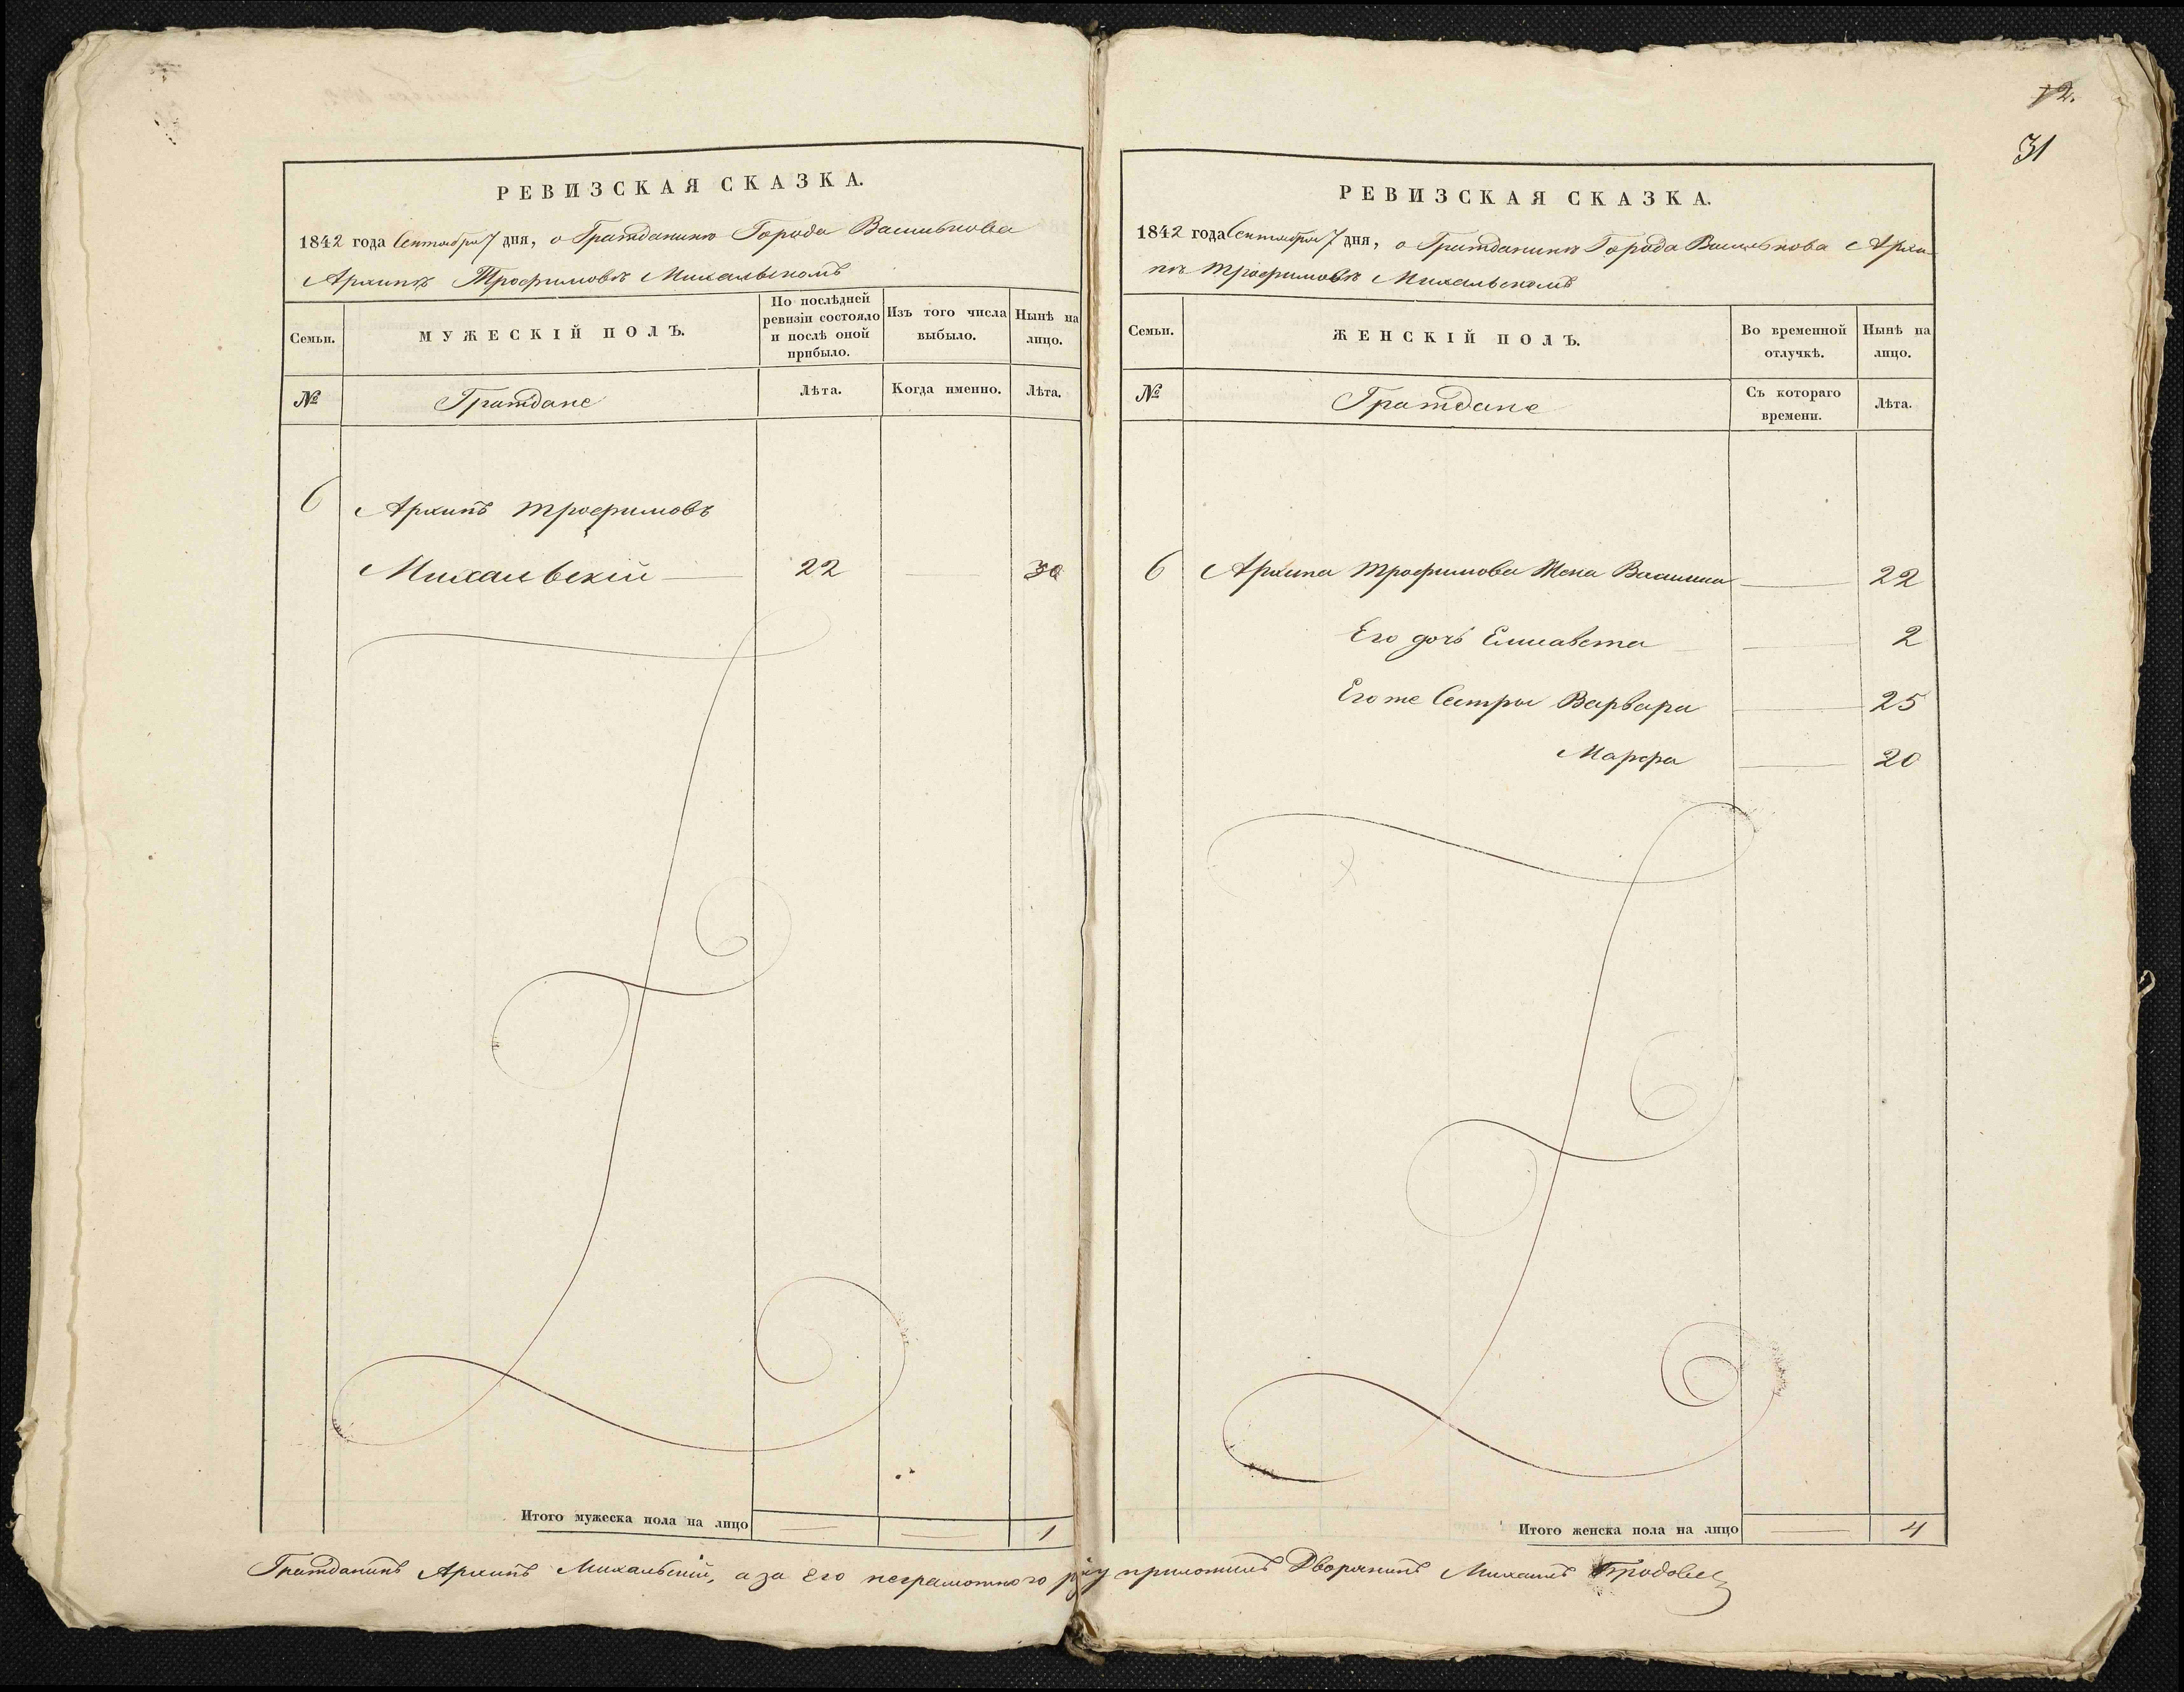 РЕВИЗСКАЯ СКАЗКА.
1842 года Сентября 7 дня, о Гражданинѣ Города Василькова
Архипѣ Трофимовѣ Михальскомъ
Семьи.
МУЖЕСКІЙ ПОЛЪ.
По послѣдней ревизіи состояло и послѣ оной прибыло.
Изъ того числа выбыло.
Нынѣ на лицо.
№
Граждане
Лѣта.
Когда именно.
Лѣта.
6 Архипъ Трофимовъ
Михальскій — 22 — 30
Итого мужеска пола на лицо — — 1
12.
31
РЕВИЗСКАЯ СКАЗКА.
1842 года Сентября 7 дня, о Гражданинѣ Города Василькова Архи-
пѣ Трофимовѣ Михальскомъ
Семьи.
ЖЕНСКІЙ ПОЛЪ.
Во временной отлучкѣ.
Нынѣ на лицо.
№
Граждане
Съ котораго времени.
Лѣта.
6 Архипа Трофимова Жена — 22
Его дочь Елисавета — 2
Его же Сестры Варвара — 25
Марфа — 20
Итого женска пола на лицо — 4
Гражданинъ Архипъ Михальскій, а за его неграмотного руку приложилъ Дворянинъ Михаилъ